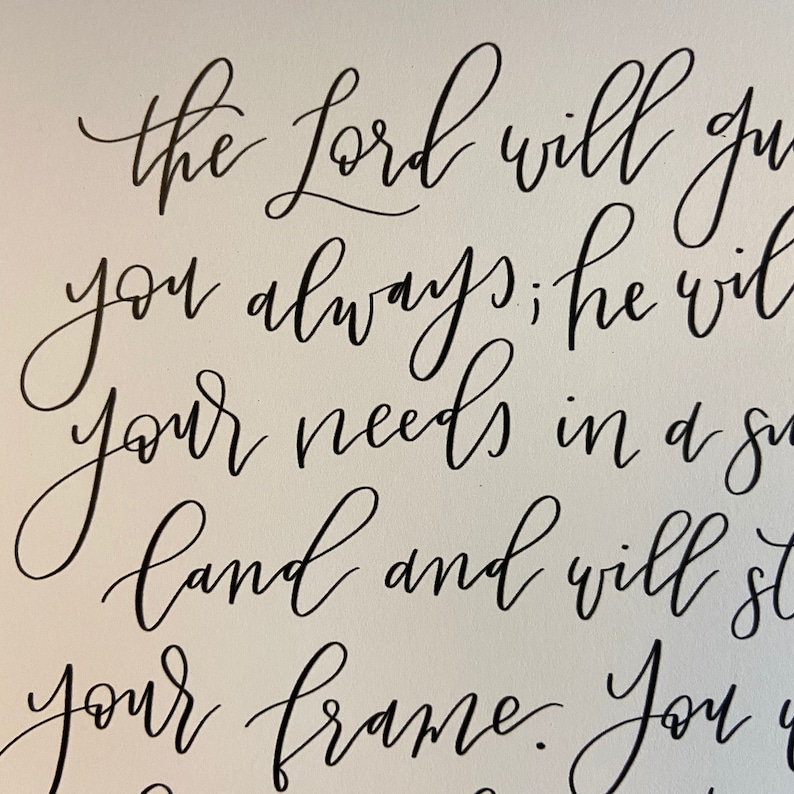 the Lord will gu
you always; he wil
your needs in a su
land and will st
your frame. You w